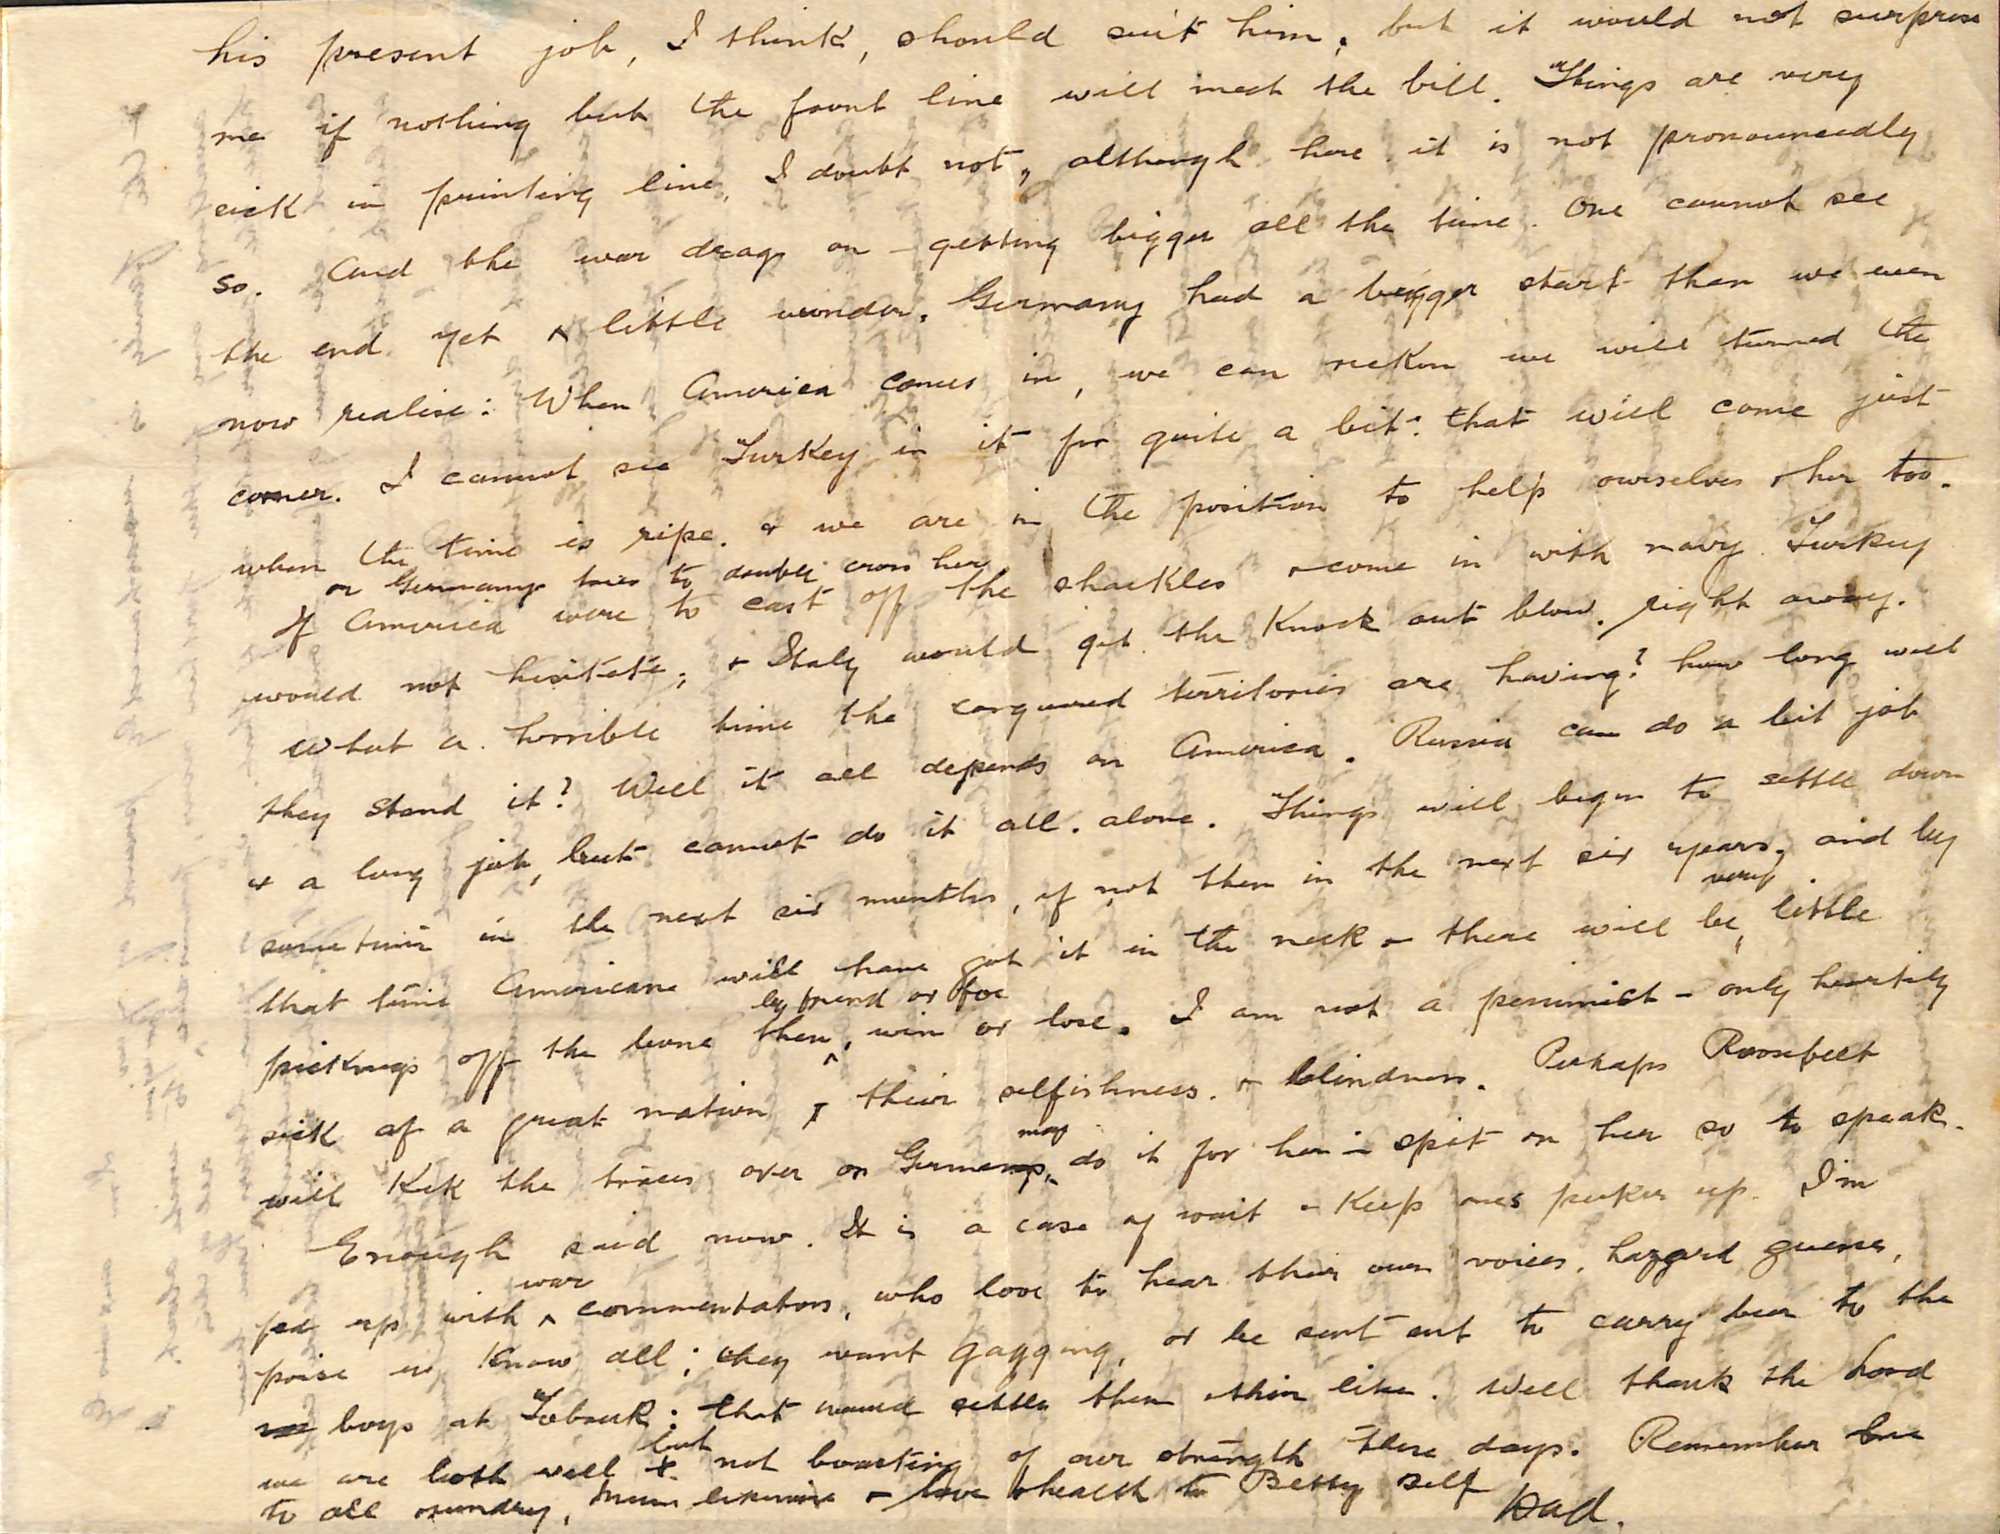 his present job, I think, should suit him, but it would not surprise
me if nothing but the front line will meet the bill. Things are very
sick in printing line, I doubt not, although here it is not pronouncedly
so. And the war drags on - getting bigger all the time. One cannot see
the end yet & little wonder. Germany had a bigger start than we even
now realise: When America comes in, we can reckon we will turned the
corner. I cannot see Turkey in it for quite a bit: that will come just
when the time is ripe. & we are in the position to help ourselves & her too.
or Germany tries to double cross her
If America were to cast off the shackles & come in with navy Turkey
would not hesitate; & Italy would get the Knock out blow right away.
What a horrible time the conquered territories are having? how long will
they stand it? Well it all depends on America. Russia can do a bit job
& a long job, but cannot do it all alone. Things will begin to settle down
sometime in the next six months, if not then in the next six years, and by
that time Americans will have got it in the neck & there will be very little
pickings off the bone then by friend or foe, win or lose. I am not a pessimist - only heartily
sick of a great nation & their selfishness & blindness. Perhaps Roosefelt
will Kick the traces over or Germany may do it for her - spit on her so to speak.
Enough said now. It is a case of wait & Keep ones pecker up. I'm
fed up with war commentators, who love to hear their own voices, hazzard guesses,
poise as Know all; they want gagging, or be sent out to carry beer to the
boys at Tobruk: that would settle them & their like. Well thank the Lord
we are both well but not boasting of our strength these days. Remember me
to all & sundry, Mum likewise & love & health to Betty & self
Dad.